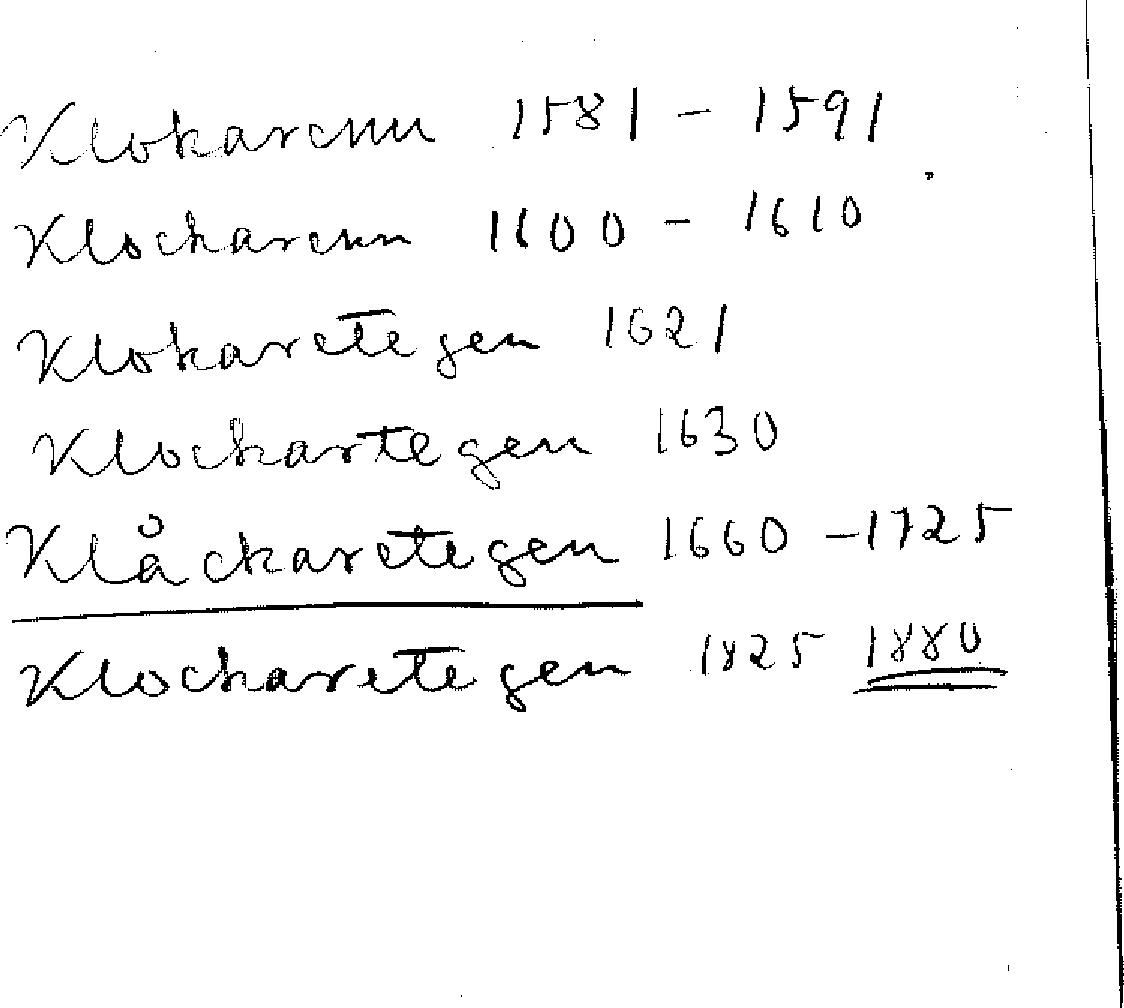 Klokarenn 1581 - 1591
Klockarenn 1600 - 1610
Klokaretegen 1621
Klockartegen 1630
Klåckaretegen 1660 - 1725
Klockaretegen 1825 1880